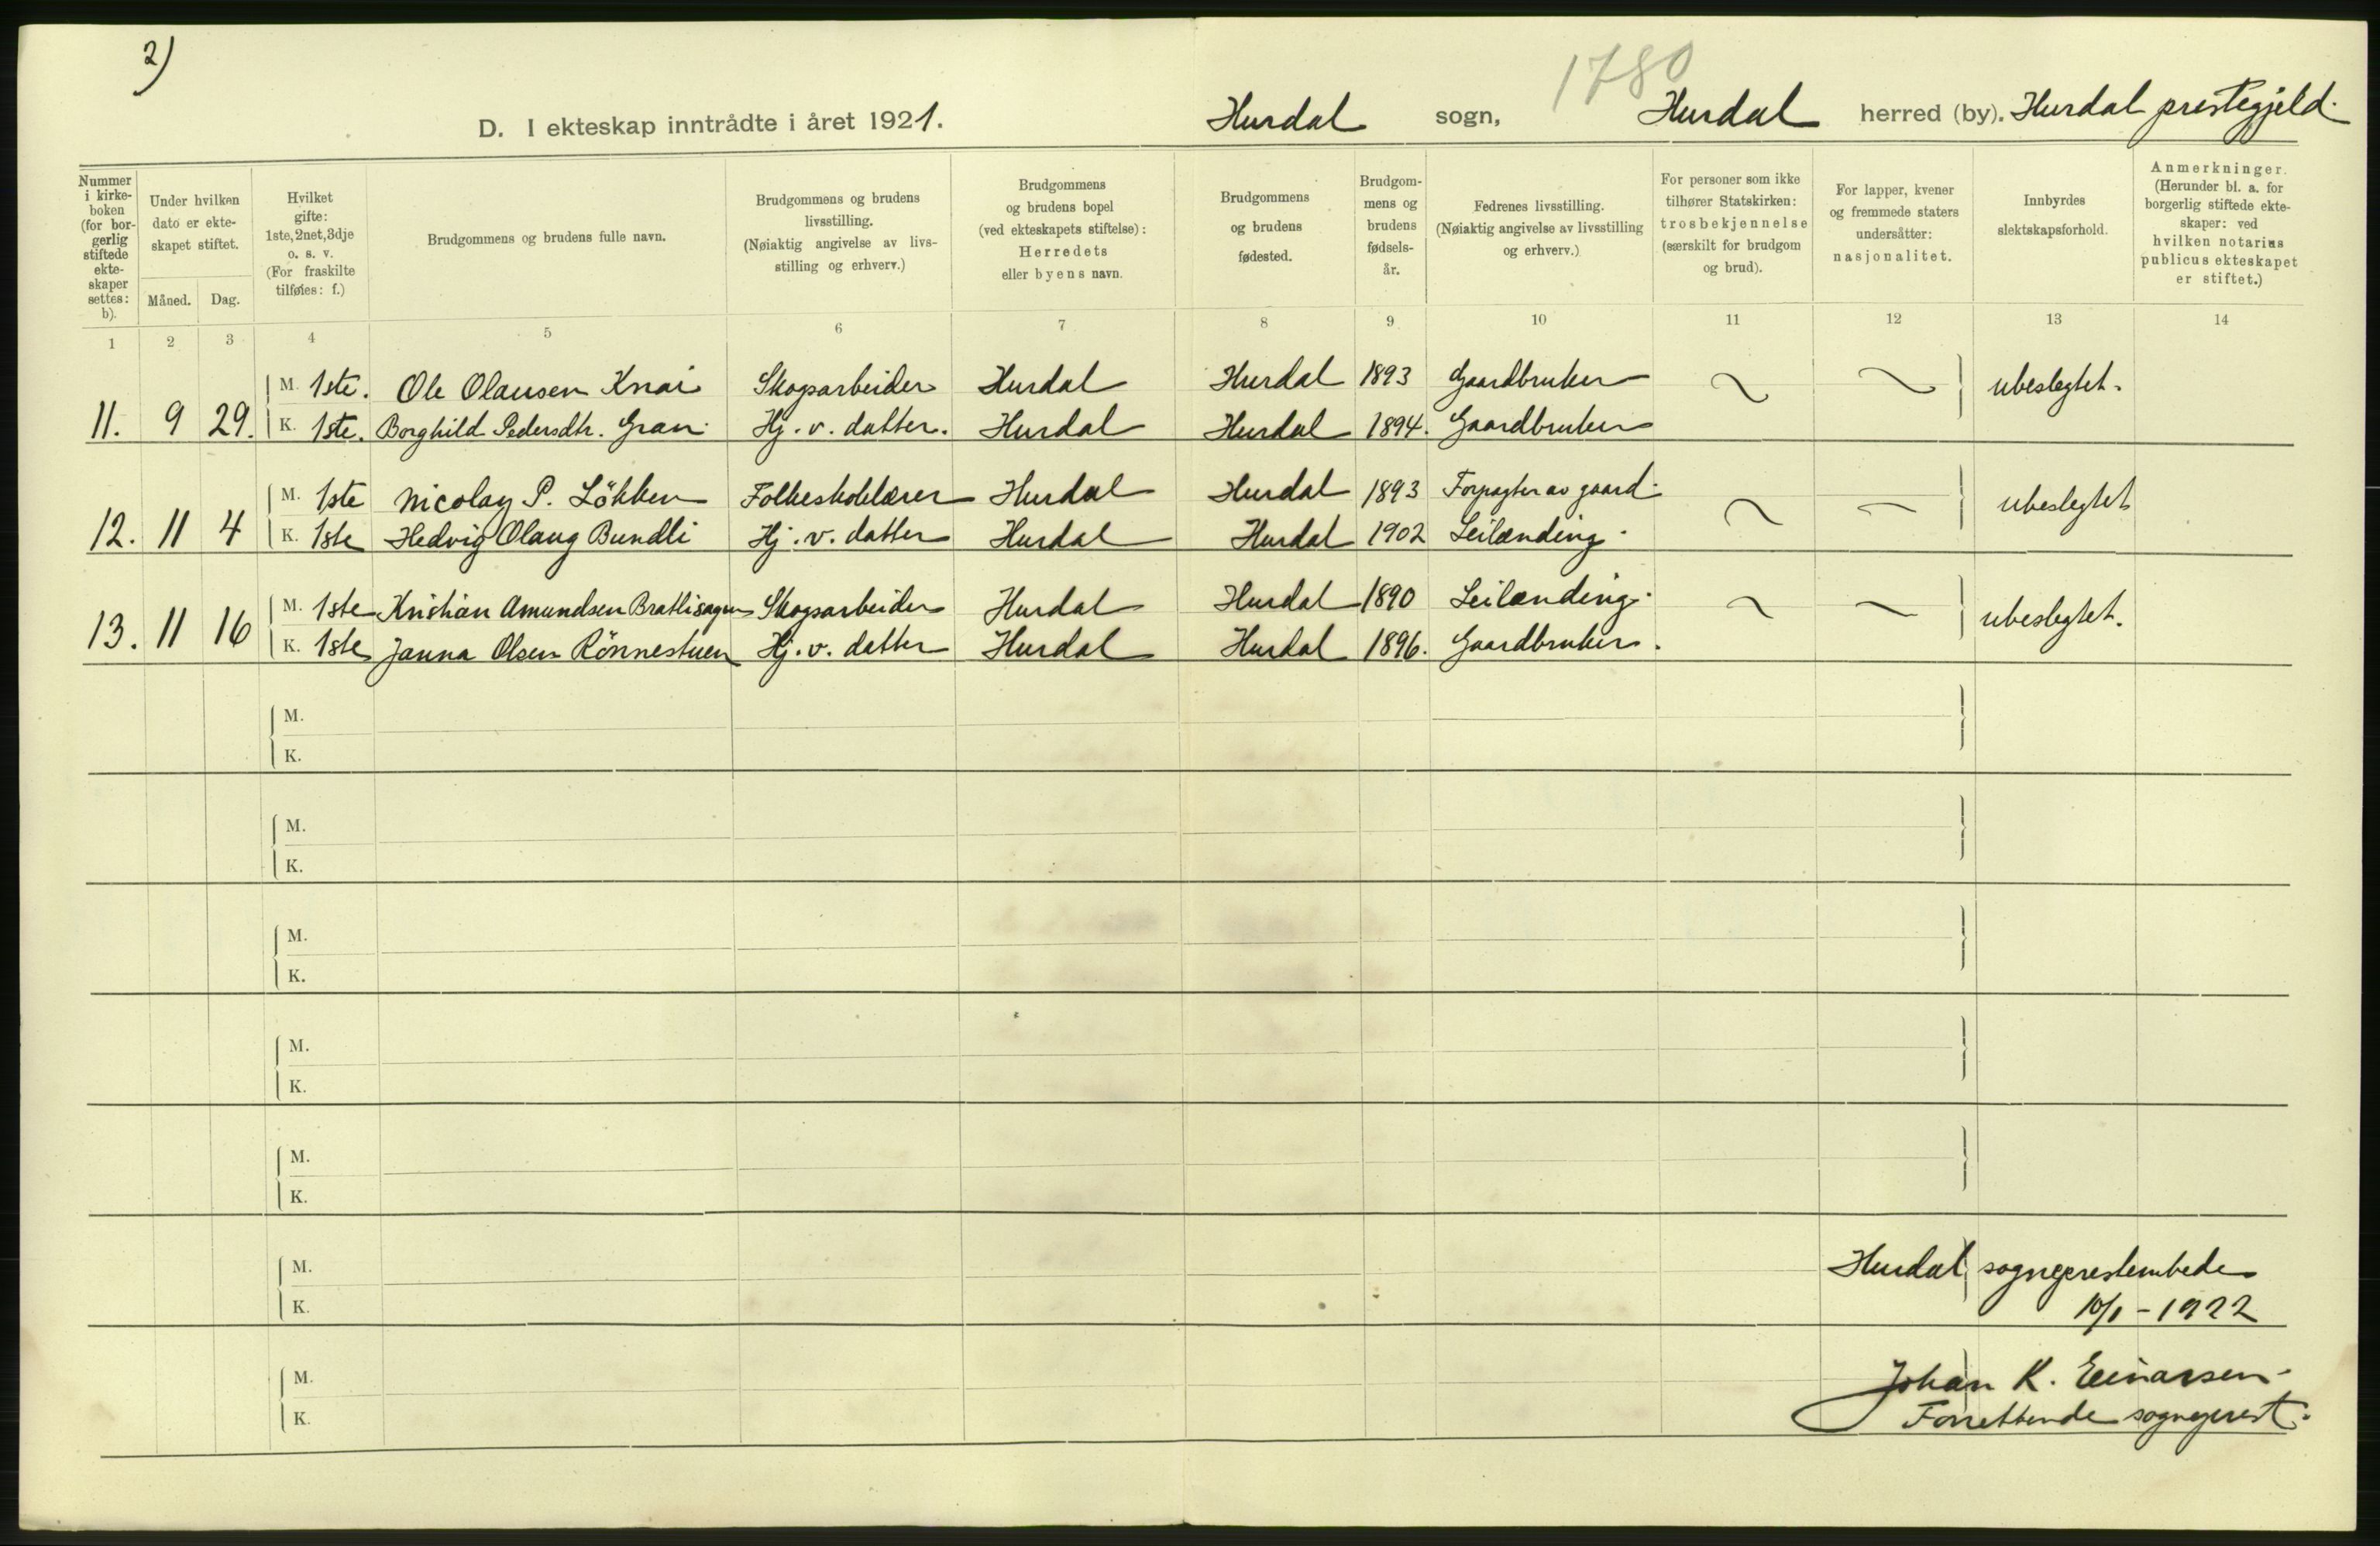 2)
1780
D. I ekteskap inntrådte i året 1921. Hurdal sogn, Hurdal herred (by). Hurdal prestegjeld.
Nummer i kirke-boken (for bor-gerlig stiftede ekte-skaper settes: b).
Under hvilken dato er ekte-skapet stiftet.
Måned. Dag.
Hvilket gifte: 1ste, 2net, 3dje o. s. v. (For fraskilte tilføies: f.)
Brudgommens og brudens fulle navn.
Brudgommens og brudens livsstilling. (Nøiaktig angivelse av livs-stilling og erhverv.)
Brudgommens og brudens bopel (ved ekteskapets stiftelse): Herredets eller byens navn.
Brudgommens og brudens fødested.
Brudgom-mens og brudens fødsels-år.
Fedrenes livsstilling. (Nøiaktig angivelse av livsstilling og erhverv.)
For personer som ikke tilhører Statskirken: trosbekjennelse (særskilt for brudgom og brud).
For lapper, kvener og fremmede staters undersåtter: nasjonalitet.
Innbyrdes slektskapsforhold.
Anmerkninger. (Herunder bl. a. for borgerlig stiftede ekte-skaper: ved hvilken notarius publicus ekteskapet er stiftet.)
1 2 3 4 5 6 7 8 9 10 11 12 13 14
M. 1ste. Ole Olausen Knai Skogsarbeider Hurdal Hurdal 1893 Gaardbruker ubeslegtet.
11. 9 29. K. 1ste. Borghild Pedersdtr. Gran. Hj. v. datter. Hurdal Hurdal 1894. Gaardbruker
M. 1ste Nicolay P. Lökken Folkeskolelærer Hurdal Hurdal 1893 Forpagter av gaard. ubeslegtet
12. 11 4 K. 1ste Hedvig Olaug Bundli Hj. v. datter Hurdal Hurdal 1902 Leilænding.
M. 1ste Kristian Amundsen Bratlisagen Skogsarbeider Hurdal Hurdal 1890 Leilænding. ubeslegtet.
13. 11 16 K. 1ste Janna Olsen Rönnestuen Hj. v. datter Hurdal Hurdal 1896. Gaardbruker.
M.
K.
M.
K.
M.
K.
M.
K.
M.
K.
M. Hurdal sogneprestembede
K. 10/1 - 1922
M. Johan K. Einarsen.
K. Forrettende sogneprest.